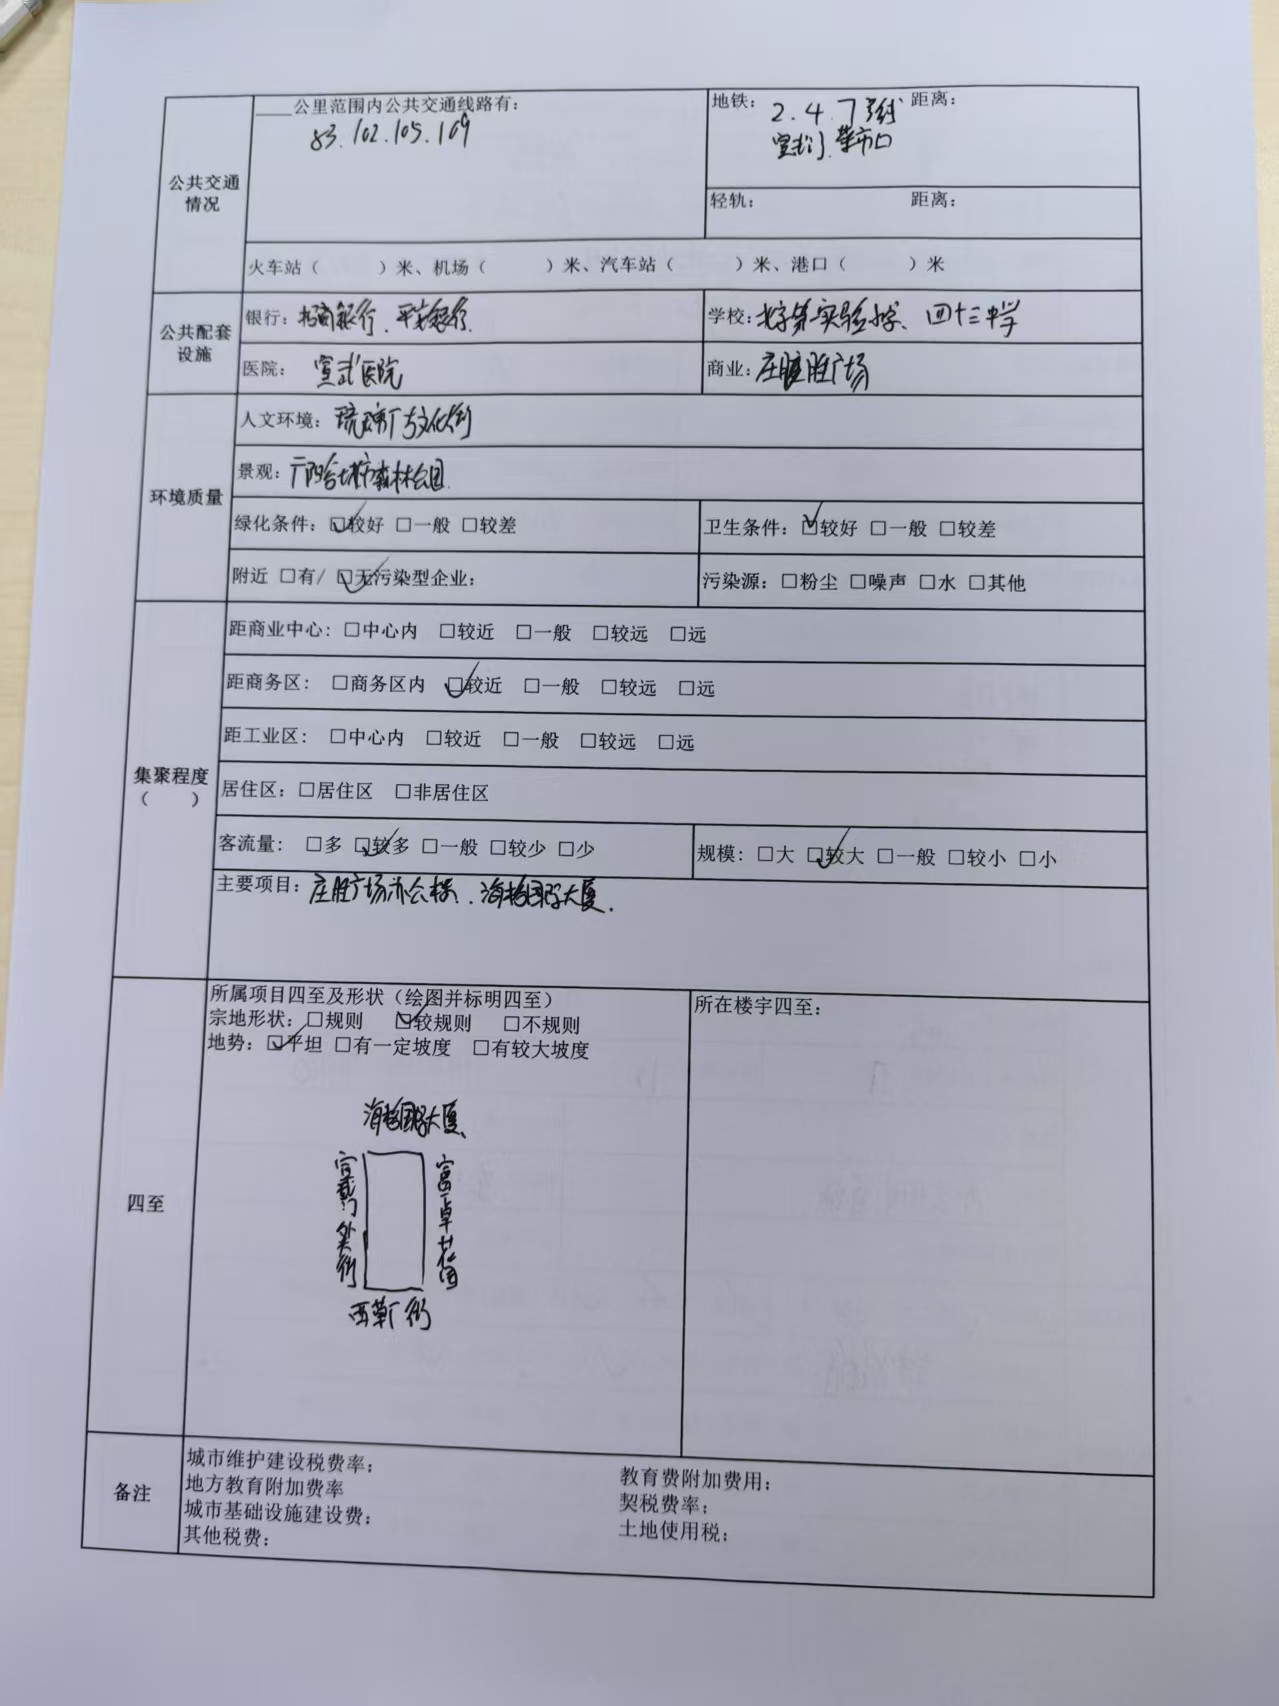 公共交通情况
____公里范围内公共交通线路有：
83.102.105.109
地铁： 2.4.7号线 距离：
宣武门.菜市口
轻轨： 距离：
火车站（ ）米、机场（ ）米、汽车站（ ）米、港口（ ）米
公共配套设施
银行：招商银行、平安银行.
学校：北京第一实验小学、四十三中学
医院： 宣武医院
商业：庄胜广场
环境质量
人文环境：琉璃厂古文化街
景观：广阳谷城市森林公园
绿化条件：☑较好 □一般 □较差
卫生条件：☑较好 □一般 □较差
附近 □有/ ☑无污染型企业：
污染源：□粉尘 □噪声 □水 □其他
集聚程度（ ）
距商业中心：□中心内 □较近 □一般 □较远 □远
距商务区： □商务区内 ☑较近 □一般 □较远 □远
距工业区： □中心内 □较近 □一般 □较远 □远
居住区：□居住区 □非居住区
客流量： □多 ☑较多 □一般 □较少 □少
规模：□大 ☑较大 □一般 □较小 □小
主要项目：庄胜广场办公楼、海格国际大厦.
四至
所属项目四至及形状（绘图并标明四至）
宗地形状：□规则 ☑较规则 □不规则
地势：☑平坦 □有一定坡度 □有较大坡度
海格国际大厦
宣武门外大街
富卓花园
西草厂街
所在楼宇四至：
备注
城市维护建设税费率；
教育费附加费用；
地方教育附加费率
契税费率；
城市基础设施建设费；
土地使用税；
其他税费：